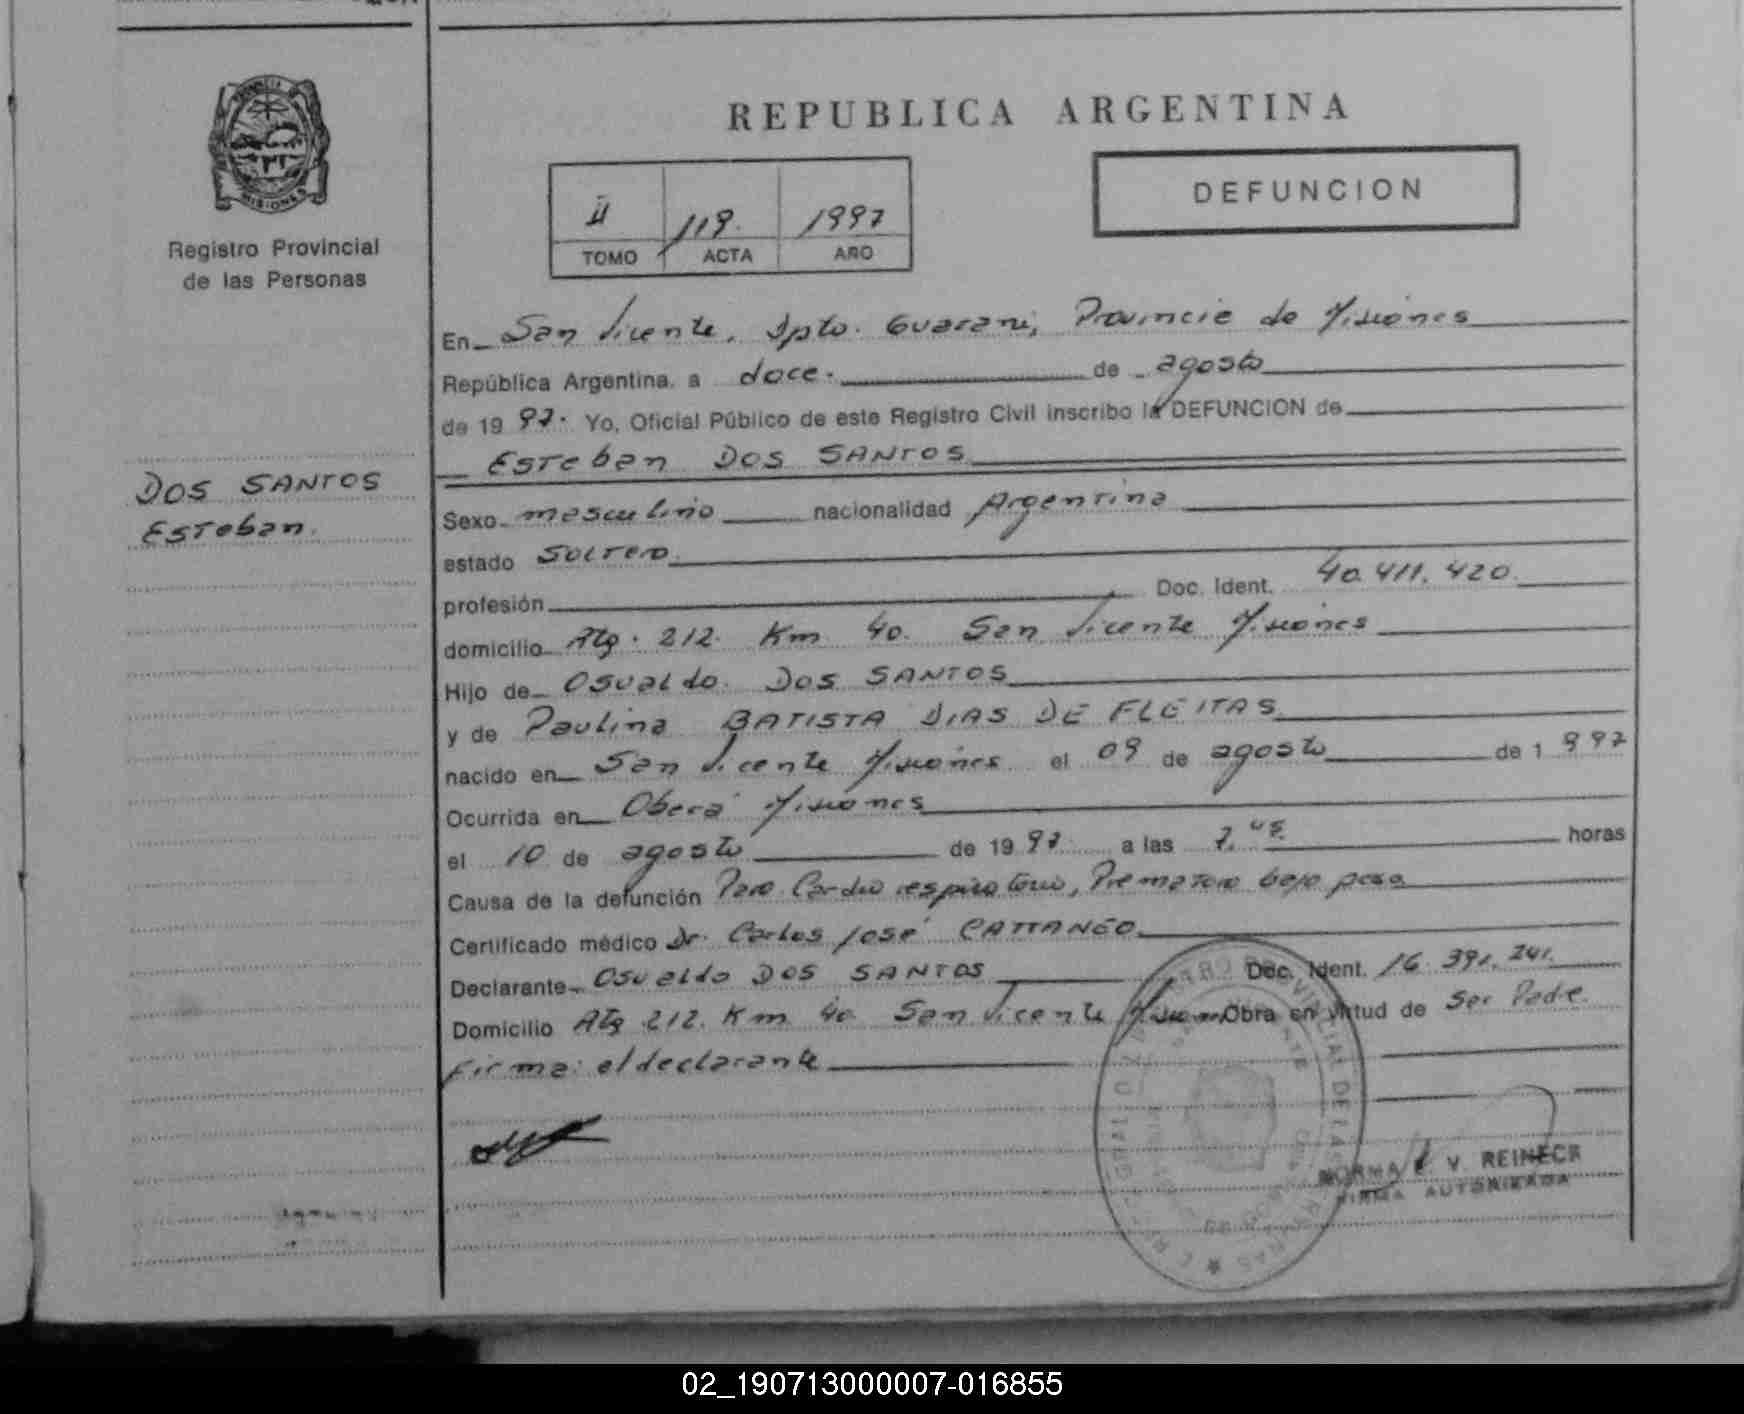 PROVINCIA DE
MISIONES
Registro Provincial
de las Personas
DOS SANTOS
Esteban.
REPUBLICA ARGENTINA
II 119. 1997
TOMO ACTA AÑO
DEFUNCION
En San Vicente, Dpto. Guarani, Provincia de Misiones
República Argentina, a doce. de agosto
de 19 97. Yo, Oficial Público de este Registro Civil inscribo la DEFUNCION de
Esteban DOS SANTOS
Sexo masculino nacionalidad Argentina
estado Soltero
profesión Doc. Ident. 40.411.420.
domicilio Alg. 212. Km 40. San Vicente Misiones
Hijo de Osvaldo. DOS SANTOS
y de Paulina BATISTA DIAS DE FLEITAS
nacido en San Vicente Misiones el 09 de agosto de 1 997
Ocurrida en Oberá Misiones
el 10 de agosto de 19 97 a las 7.45 horas
Causa de la defunción Paro Cardio respiratorio, Prematuro bajo peso
Certificado médico Dr. Carlos José CATTANEO
Declarante Osvaldo DOS SANTOS Doc. Ident. 16.391.241.
Domicilio Alg 212. Km 40 San Vicente Misiones Obra en virtud de Ser Padre.
Firma: el declarante
NORMA E. V. REINECK
FIRMA AUTORIZADA
02_190713000007-016855